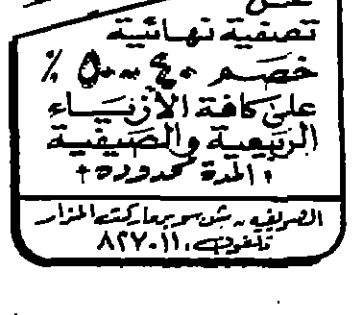 تصفية نهائية
خصم ٤٠ - ٥٠ ٪
على كافة الأزياء
الربيعية والصيفية
المدة محدودة
سوبر ماركت المزار
تلفون ٨٢٧٠١١